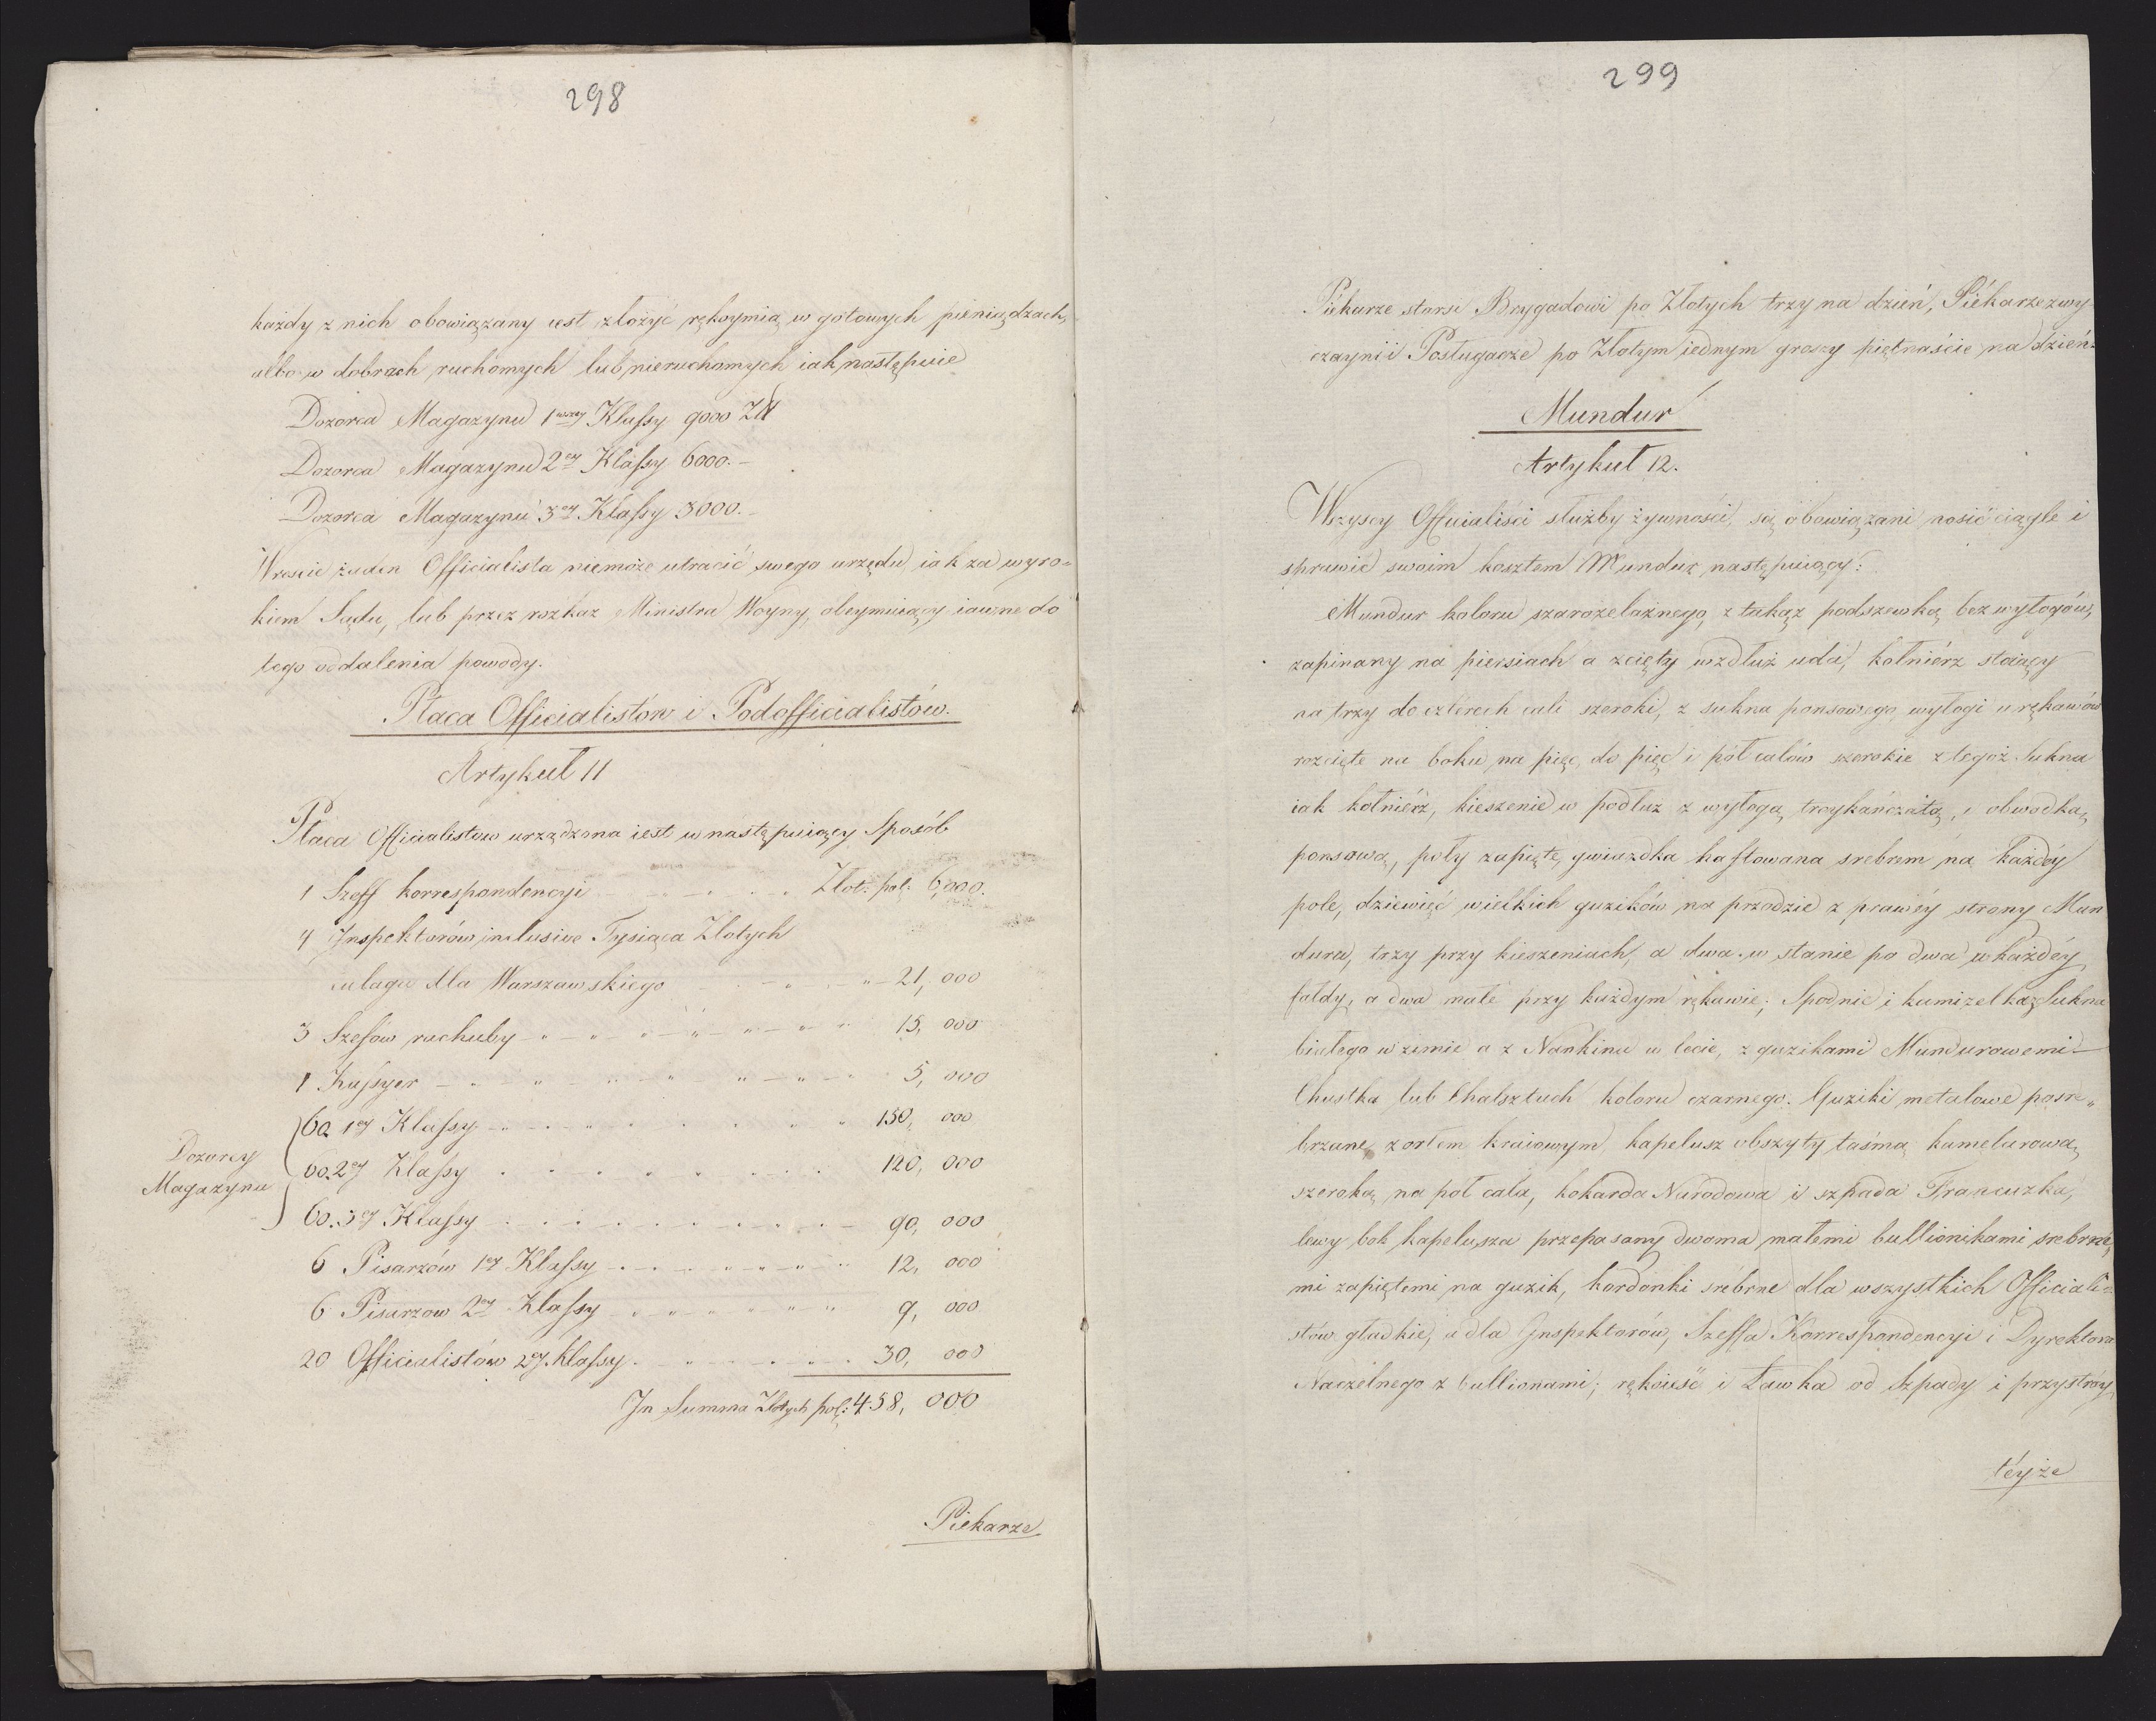 298
każdy z nich obowiązany iest złożyć rękoymią w gotowych pieniądzach,
albo w dobrach ruchomych lub nieruchomych iak następuie
Dozorca Magazynu 1wszey Klassy 9000 Zł
Dozorca Magazynu 2ey Klassy 6000.-
Dozorca Magazynu 3ey Klassy 3000.-
Wreście żaden Officialista niemoże utracić swego urzędu iak za wyro=
kiem Sądu, lub przez rozkaz Ministra Woyny, obeymuiący iawne do
tego oddalenia powody.
Płaca Officialistów i Podofficialistów.
Artykuł 11
Płaca Officialistow urządzona iest w następuiący Sposób
1 Szeff korrespondencyi Złot: pol: 6,000.
4 Inspektorów inclusive Tysiąca Złotych
dla Warszawskiego 21,000
3 Szefow rachuby 15,000
1 Kassyer 5,000
Dozorcy Magazynu
60 1ey Klassy 150,000
60. 2ey Klassy 120,000
60. 3ey Klassy 90,000
6 Pisarzów 1ey Klassy 12,000
6 Pisarzow 2ey Klassy 9,000
20 Officialistów 2ey Klassy 30,000
In Summa Złotych pol: 458,000
Piekarze
299
Piekarze starsi Brygadowi po Złotych trzy na dzień, Piekarze zwy-
czayni i Posługacze po Złotym iednym groszy piętnaście na dzień.
Mundur
Artykuł 12.
Wszyscy Officialiści służby żywności, są obowiązani nosić ciągle i
sprawić swoim kosztem Mundur następuiący:
Mundur koloru szarożelaznego, z takąż podszewką bez wyłogów,
zapinany na piersiach a zcięty wzdłuż uda, kołniérz stoiący
na trzy do czterech cali szeroki, z sukna ponsowego wyłogi u rękawów
rozcięte na boku na pięc do pięc i pół calów szerokie z tegoż Sukna
iak kołniérz, kieszenie w podłuz z wyłogą troykańczatą, i obwodką
ponsową, poły zapięte, gwiazdka haftowana srebrem na każdéy
pole, dziewięć wielkich guzików na przodzie z prawéy strony Mun
duru, trzy przy kieszeniach, a dwa w stanie po dwa w każdéy
fałdy, a dwa małe przy każdym rękawie; Spodnie i kamizelka z Sukna
białego w zimie a z Nankinu w lecie, z guzikami Mundurowemi
Chustka lub Chalsztuch koloru czarnego. Guziki metalowe posre„
brzane z orłem kraiowym kapelusz obszyty taśmą kamelorową
szeroką na poł cala, kokarda Narodowa i szpada Francuzka,
lewy bok kapelusza przepasany dwoma małemi bullionikami srebrne,
mi zapiętemi na guzik, kordonki srébrne dla wszystkich Officiali=
stów gładkie, a dla Inspektorów, Szeffa Korrespondencyi i Dyrektora
Naczelnego z bullionami; rękoieść i Ławka od Szpady i przystróy
téyże